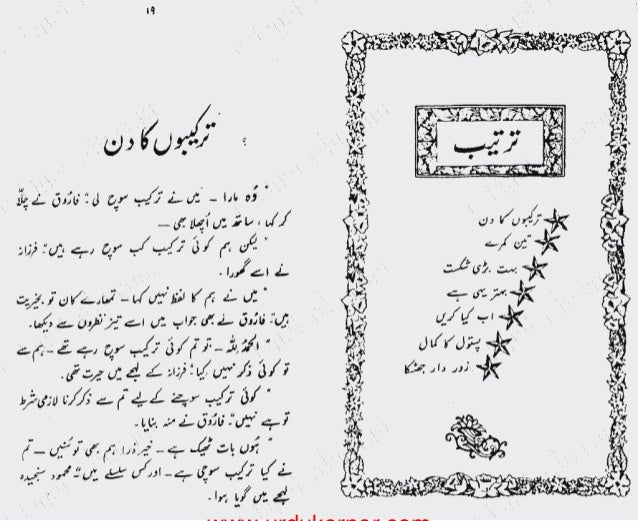 ترتیب
ترکیبوں کا دن
تین کمرے
بہت بڑی شکست
بہتر یہی ہے
اب کیا کریں
پستول کا کمال
زور دار جھٹکا
۱۹
ترکیبوں کا دن
" وُہ مارا ــ میں نے ترکیب سوچ لی"۔ فارُوق نے چلّا
کر کہا ، ساتھ میں اُچھلا بھی ــ
" لیکن ہم کوئی ترکیب کب سوچ رہے ہیں"۔ فرزانہ
نے اسے گھورا ۔
" میں نے ہم کا لفظ نہیں کہا ــ تمھارے کان تو بخیریت
ہیں"۔ فارُوق نے بھی جواب میں اسے تیز نظروں سے دیکھا۔
" الحمدُ للہ ــ تو تم کوئی ترکیب سوچ رہے تھے ــ ہم سے
تو کوئی ذکر نہیں کیا"۔ فرزانہ کے لہجے میں حیرت تھی۔
" کوئی ترکیب سوچنے کے لیے تم سے ذکر کرنا لازمی شرط
تو ہے نہیں"۔ فارُوق نے منہ بنایا۔
" ہُوں بات ٹھیک ہے ــ خیر ذرا ہم بھی تو سُنیں ــ تم
نے کیا ترکیب سوچی ہے ــ اور کس سلسلے میں"۔ محمود سنجیدہ
لہجے میں گویا ہوا۔
www.urdukorner.com